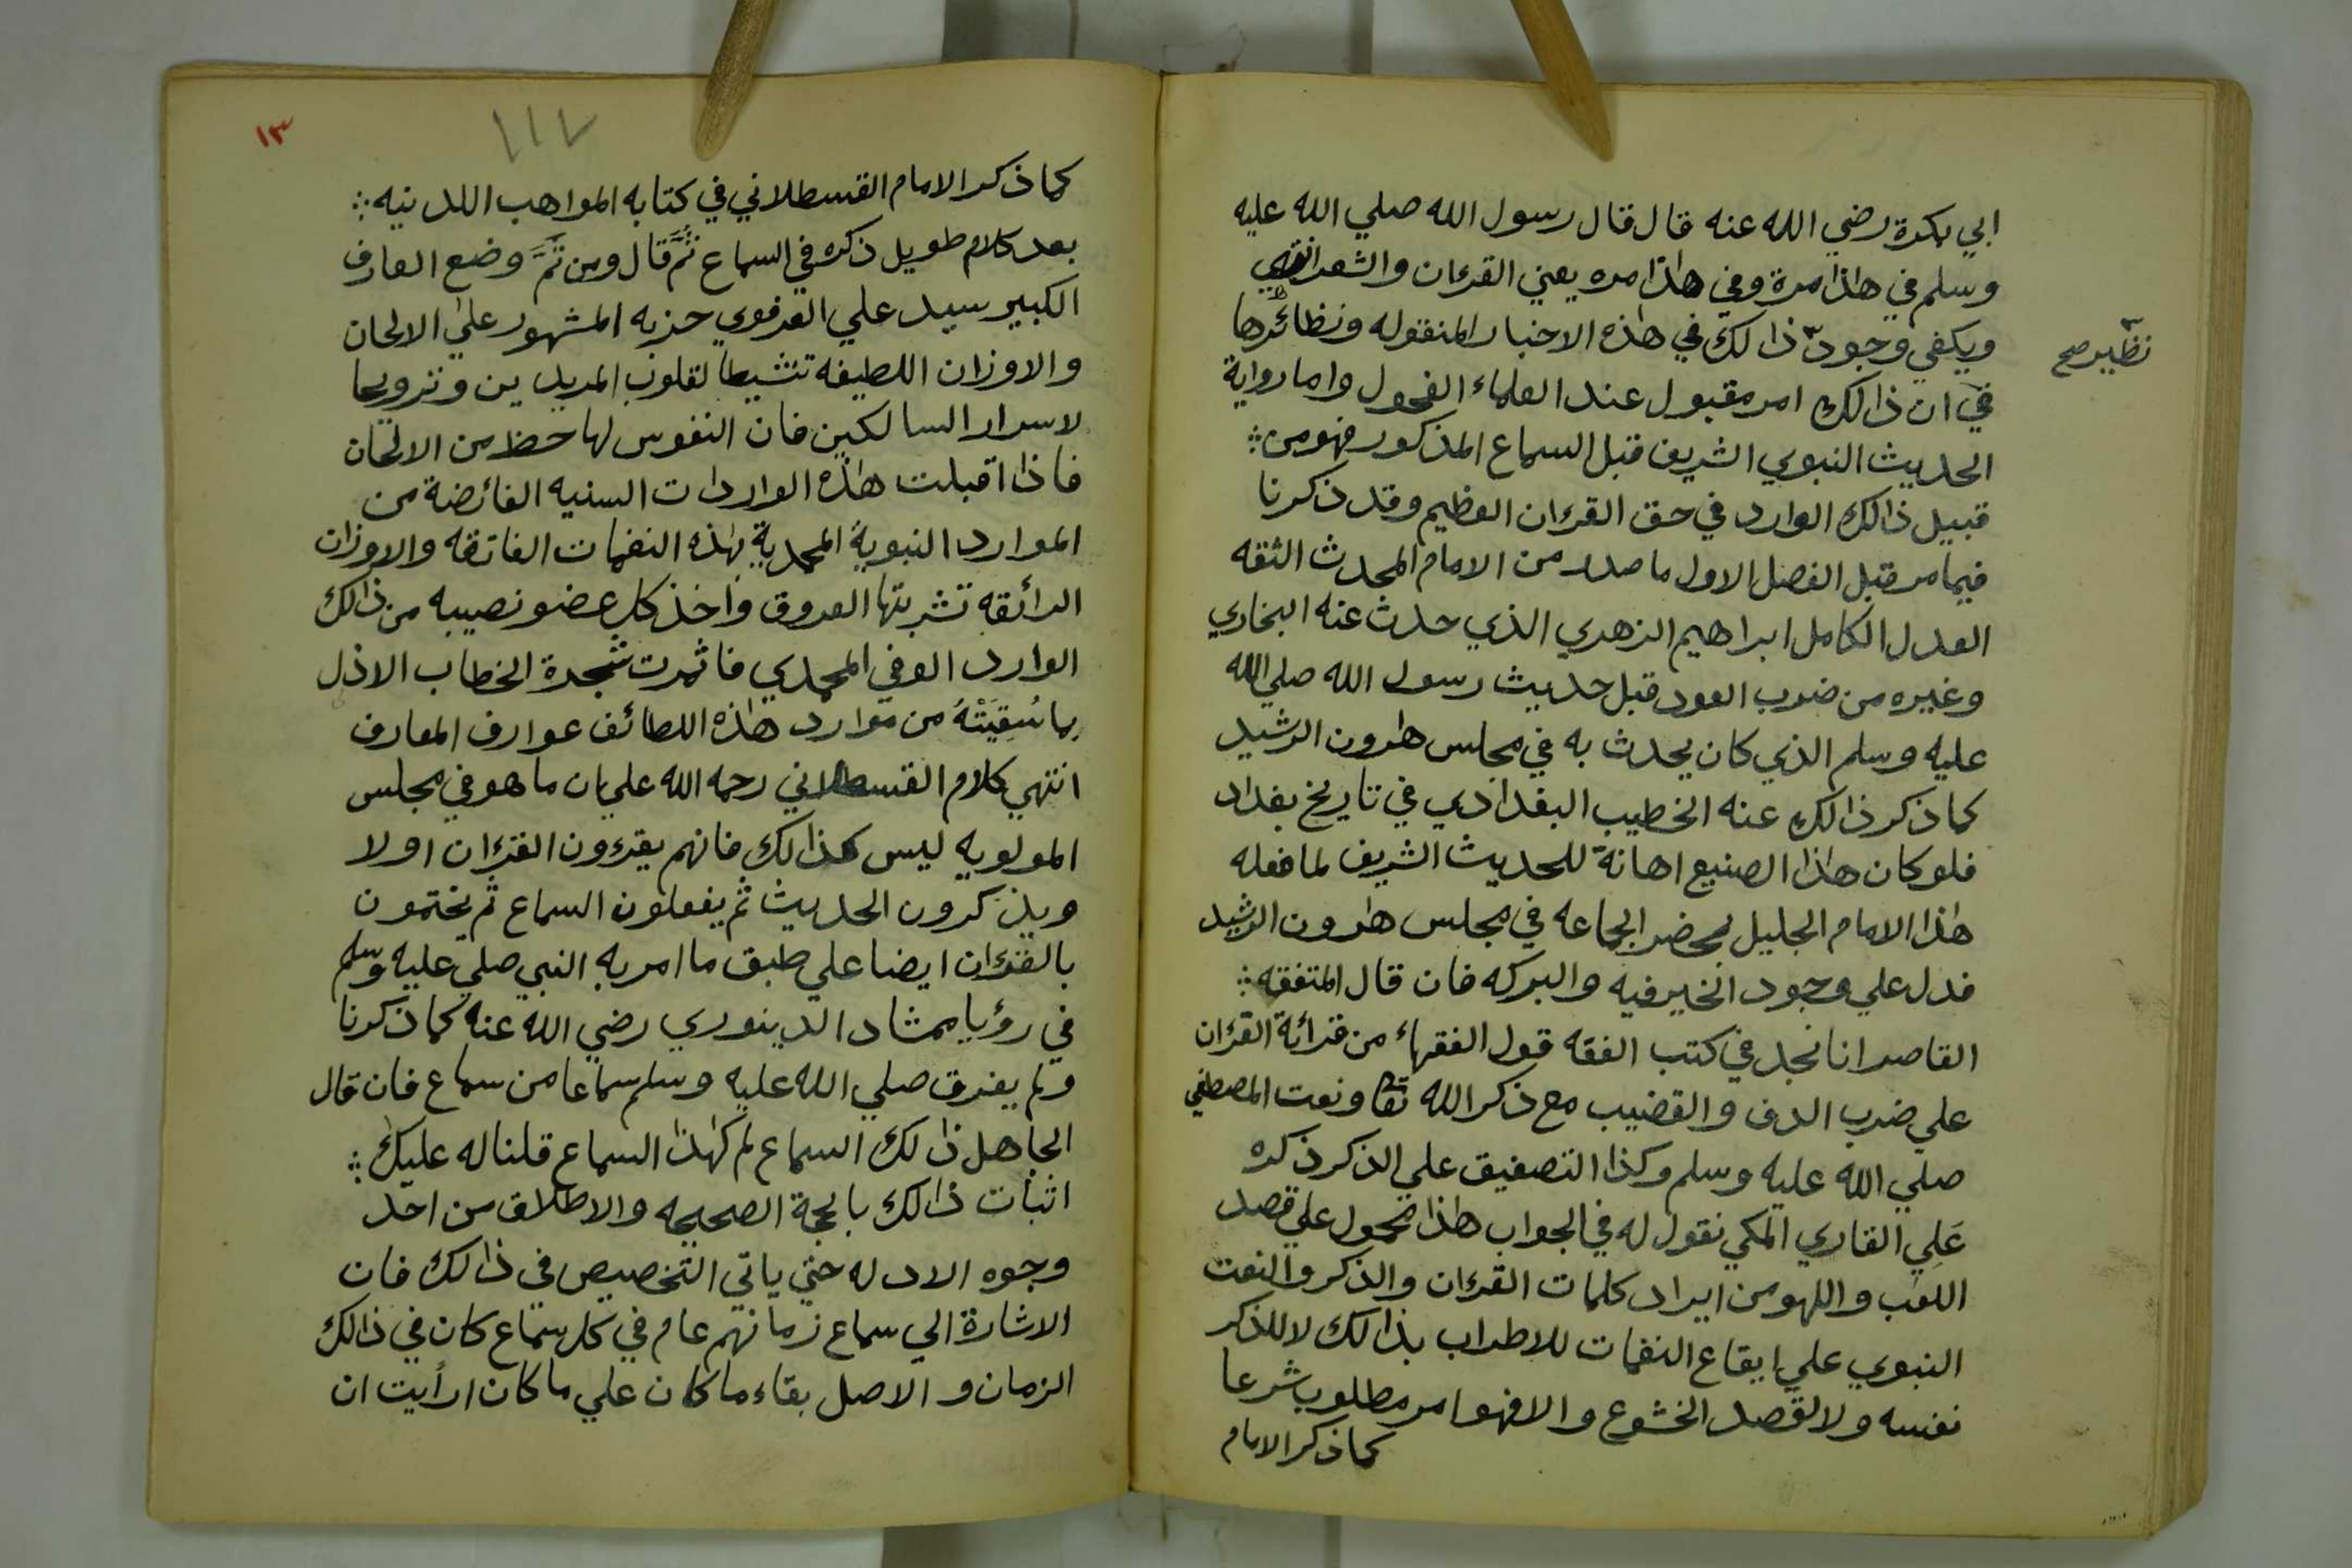 ابي بكرة رضي الله عنه قال قال رسول الله صلي الله عليه
وسلم في هاذا مرة وفي هاذا مره يعني القرءان والشعر انتهي
ويكفي وجود ذالك في هاذه الاخبار المنقوله ونظائرها
نظير صح
في ان ذالك امر مقبول عند العلماء الفحول واما رواية
الحديث النبوي الشريف قبل السماع المذكور فهو من
قبيل ذالك الوارد في حق القرءان العظيم وقد ذكرنا
فيما مر قبل الفصل الاول ما صدر من الامام المحدث الثقه
العدل الكامل ابراهيم الزهري الذي حدث عنه البخاري
وغيره من ضرب العود قبل حديث رسول الله صلي الله
عليه وسلم الذي كان يحدث به في مجلس هارون الرشيد
كما ذكر ذالك عنه الخطيب البغدادي في تاريخ بغداد
فلو كان هاذا الصنيع اهانة للحديث الشريف لما فعله
هاذا الامام الجليل بمحضر الجماعه في مجلس هارون الرشيد
فدل علي وجود الخير فيه والبركه فان قال المتفقه
القاصر انا نجد في كتب الفقه قول الفقهاء من قرائة القرءان
علي ضرب الدف والقضيب مع ذكر الله تعا ونعت المصطفي
صلي الله عليه وسلم وكذا التصفيق علي الذكر ذكره
علي القاري المكي نقول له في الجواب هاذا محمول علي قصد
اللعب واللهو من ايراد كلمات القرءان والذكر والنعت
النبوي علي ايقاع النغمات للاطراب بذالك لا للذكر
نفسه ولا لقصد الخشوع والا فهو امر مطلوب شرعا
كما ذكر الامام
١٣
١١٧
كما ذكر الامام القسطلاني في كتابه المواهب اللدنيه
بعد كلام طويل ذكره في السماع ثم قال ومن ثم وضع العارف
الكبير سيد علي الوفوي حزبه المشهور علي الالحان
والاوزان اللطيفه تنشيطا لقلوب المريدين وترويحا
لاسرار السالكين فان النفوس لها حظ من الالحان
فاذا اقبلت هاذه الواردات السنيه الفائضة من
الموارد النبوية المحمدية بهاذه النغمات الفائقه والاوزان
الرائقه تشربتها العروق واخذ كل عضو نصيبه من ذالك
الوارد الوفي المحمدي فاثمرت شجرة الخطاب الازل
بما سُقِيَتْهُ من موارد هاذه اللطائف عوارف المعارف
انتهي كلام القسطلاني رحمه الله علي ان ما هو في مجلس
المولويه ليس كذالك فانهم يقرءون القرءان اولا
ويذكرون الحديث ثم يفعلون السماع ثم يختمون
بالقرءان ايضا علي طبق ما امر به النبي صلي عليه وسلم
في رؤيا ممشاد الدينوري رضي الله عنه كما ذكرنا
ولم يفرق صلي الله عليه وسلم سماعا من سماع فان قال
الجاهل ذالك السماع لم كهاذا السماع قلنا له عليك
اثبات ذالك بالحجة الصحيحه والاطلاق من احد
وجوه الادله حتي ياتي التخصيص في ذالك فان
الاشارة الي سماع زمانهم عام في كل سماع كان في ذالك
الزمان والاصل بقاء ما كان علي ما كان ارأيت ان